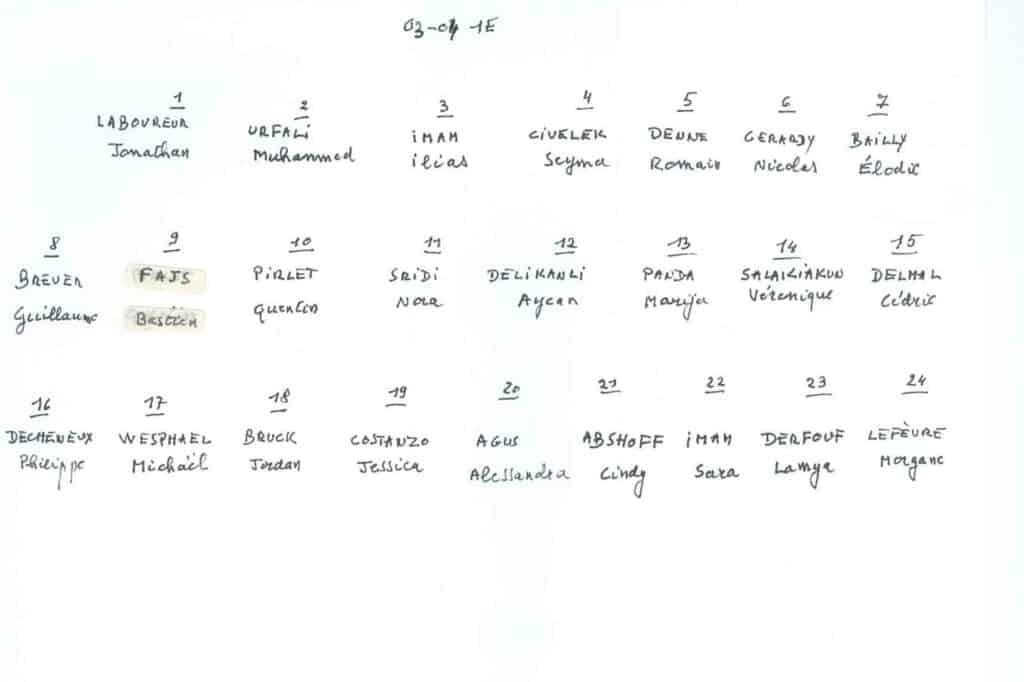 03-04 1E
1 2 3 4 5 6 7
LABOUREUR URFALi iMAM CiVELEK DENNE GERARDY BAILLY
Jonathan Muhammed ilias Seyma Romain Nicolas Élodie
8 9 10 11 12 13 14 15
BREUER FAJS PiRLET SRiDi DELiKANLi PANDA DELHAL
Guillaume Bastien Quentin Nora Aycan Marija Véronique Cédric
16 17 18 19 20 21 22 23 24
DECHENEUX WESPHAEL BRUCK COSTANZO AGUS ABSHOFF iMAM DERFOUF LEFÈVRE
Philippe Michaël Jordan Jessica Alessandra Cindy Sara Lamya Morgane